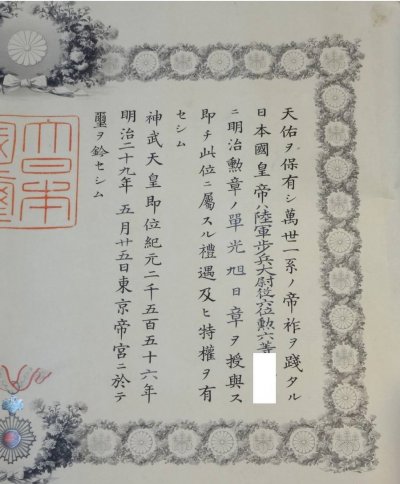 天佑ヲ保有シ萬世一系ノ帝祚ヲ踐タル
日本國皇帝ハ陸軍步兵大尉從六位勲六等
ニ明治勲章ノ單光旭日章ヲ授與ス
即チ此位ニ屬スル禮遇及ヒ特權ヲ有
セシム
神武天皇即位紀元二千五百五十六年
明治二十九年五月廿五日東京帝宮ニ於テ
璽ヲ鈐セシム
大日本
國璽